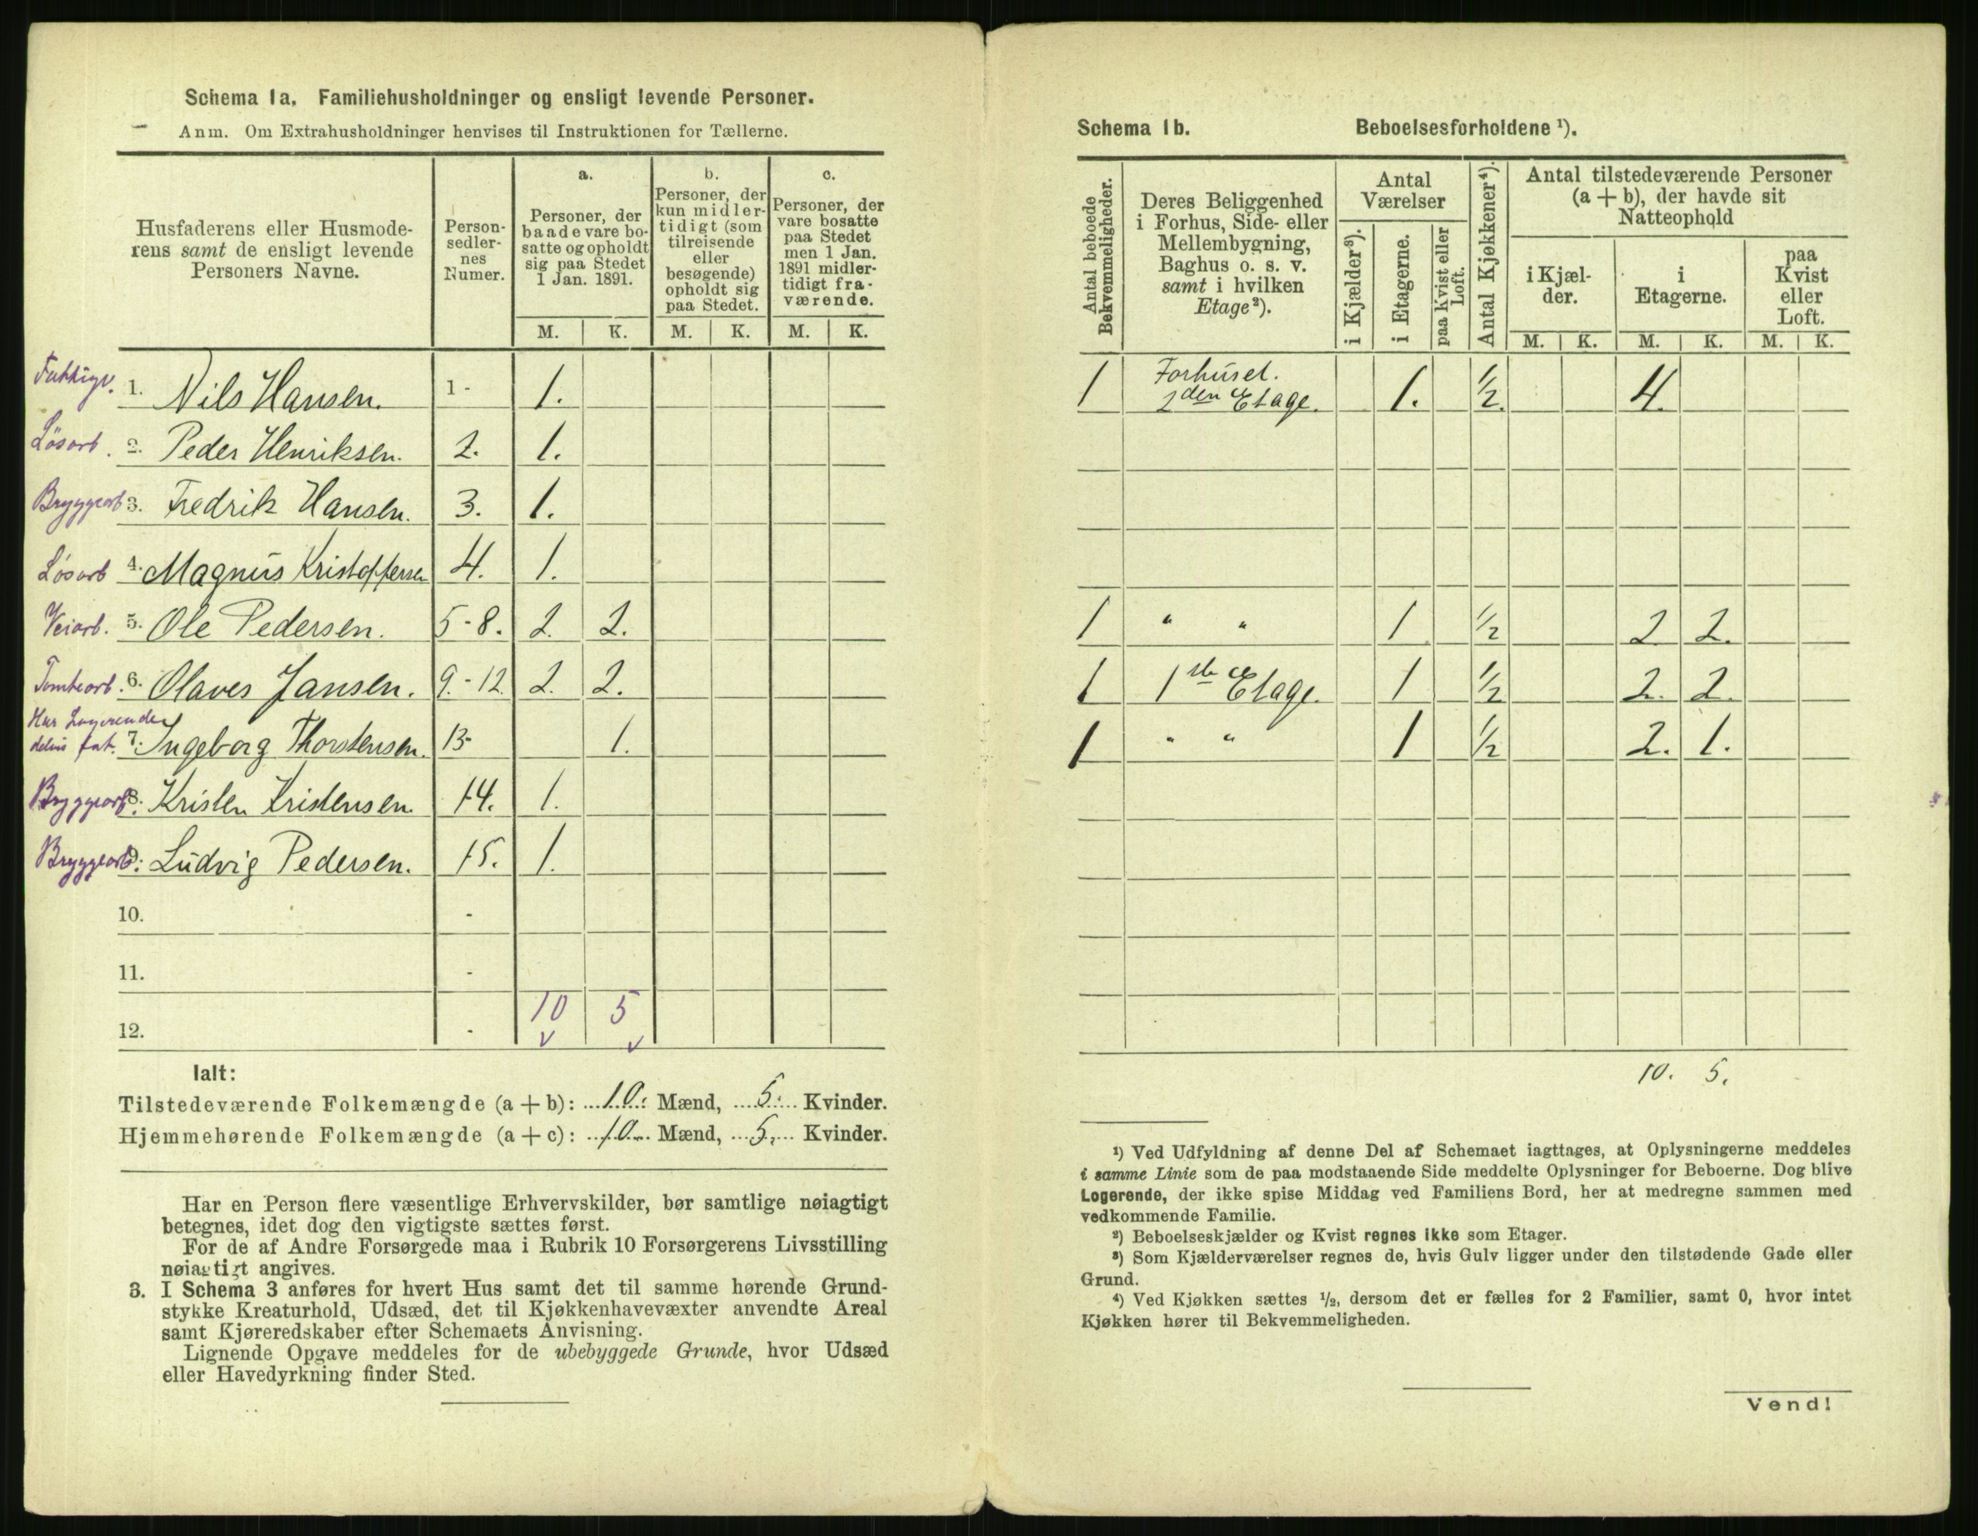 Schema 1a. Familiehusholdninger og ensligt levende Personer.
Anm. Om Extrahusholdninger henvises til Instruktionen for Tællerne.
Husfaderens eller Husmoderens samt de ensligt levende Personers Navne.
Person-sedler-nes Numer.
a. Personer, der baade vare bosatte og opholdt sig paa Stedet 1 Jan. 1891.
b. Personer, der kun midlertidigt (som tilreisende eller besøgende) opholdt sig paa Stedet.
c. Personer, der vare bosatte paa Stedet men 1 Jan. 1891 midlertidigt fraværende.
M. K. M. K. M. K.
Fattigv. 1. Nils Hansen. 1 - 1.
Løsarb. 2. Peder Henriksen. 2. 1.
Bryggearb 3. Fredrik Hansen. 3. 1.
Løsarb 4. Magnus Kristoffersen 4. 1.
Veiarb. 5. Ole Pedersen. 5-8. 2. 2.
Tomtearb. 6. Olaves Jansen. 9.-12. 2. 2.
Har Logerende
delvis fat. 7. Ingeborg Thorstensen. 13- 1.
Bryggearb. 8. Kristen Kristensen. 14. 1.
Bryggearb. 9. Ludvig Pedersen. 15. 1.
10. -
11. -
10 5
12. -
Ialt:
Tilstedeværende Folkemængde (a + b): 10. Mænd, 5. Kvinder.
Hjemmehørende Folkemængde (a + c): 10. Mænd, 5. Kvinder.
Har en Person flere væsentlige Erhvervskilder, bør samtlige nøiagtigt
betegnes, idet dog den vigtigste sættes først.
For de af Andre Forsørgede maa i Rubrik 10 Forsørgerens Livsstilling
nøiagtigt angives.
3. I Schema 3 anføres for hvert Hus samt det til samme hørende Grund-
stykke Kreaturhold, Udsæd, det til Kjøkkenhavevæxter anvendte Areal
samt Kjøreredskaber efter Schemaets Anvisning.
Lignende Opgave meddeles for de ubebyggede Grunde, hvor Udsæd
eller Havedyrkning finder Sted.
Schema 1b. Beboelsesforholdene ¹).
Antal beboede Bekvemmeligheder.
Deres Beliggenhed i Forhus, Side- eller Mellembygning, Baghus o. s. v. samt i hvilken Etage²).
Antal Værelser
i Kjælder³).
i Etagerne.
paa Kvist eller Loft.
Antal Kjøkkener⁴).
Antal tilstedeværende Personer (a + b), der havde sit Natteophold
i Kjælder.
i Etagerne.
paa Kvist eller Loft.
M. K. M. K. M. K.
1 Forhuset. 2den Etage. 1. 1/2 4.
1 " " 1 1/2 2 2.
1 1ste Etage. 1 1/2 2. 2.
1 " " 1 1/2 2. 1.
10. 5.
¹) Ved Udfyldning af denne Del af Schemaet iagttages, at Oplysningerne meddeles
i samme Linie som de paa modstaaende Side meddelte Oplysninger for Beboerne. Dog blive
Logerende, der ikke spise Middag ved Familiens Bord, her at medregne sammen med
vedkommende Familie.
²) Beboelseskjælder og Kvist regnes ikke som Etager.
³) Som Kjælderværelser regnes de, hvis Gulv ligger under den tilstødende Gade eller
Grund.
⁴) Ved Kjøkken sættes 1/2, dersom det er fælles for 2 Familier, samt 0, hvor intet
Kjøkken hører til Bekvemmeligheden.
Vend!